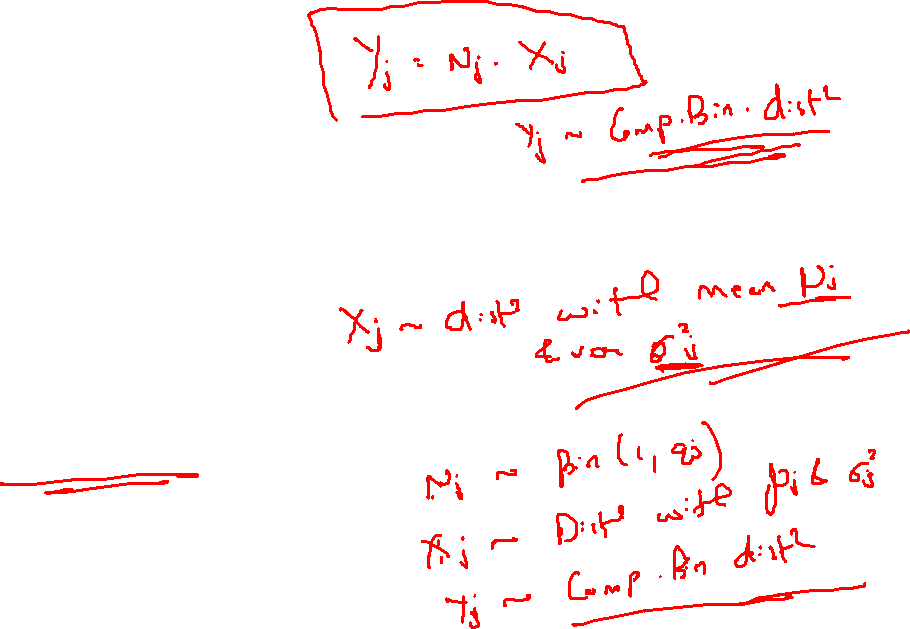 Yj = Nj . Xj
Yj ~ Comp. Bin. distⁿ
Xj ~ distⁿ with mean μj
& var σ²j
Nj ~ Bin (1, qj)
Xj ~ Distⁿ with μj & σj²
Yj ~ Comp. Bin distⁿ